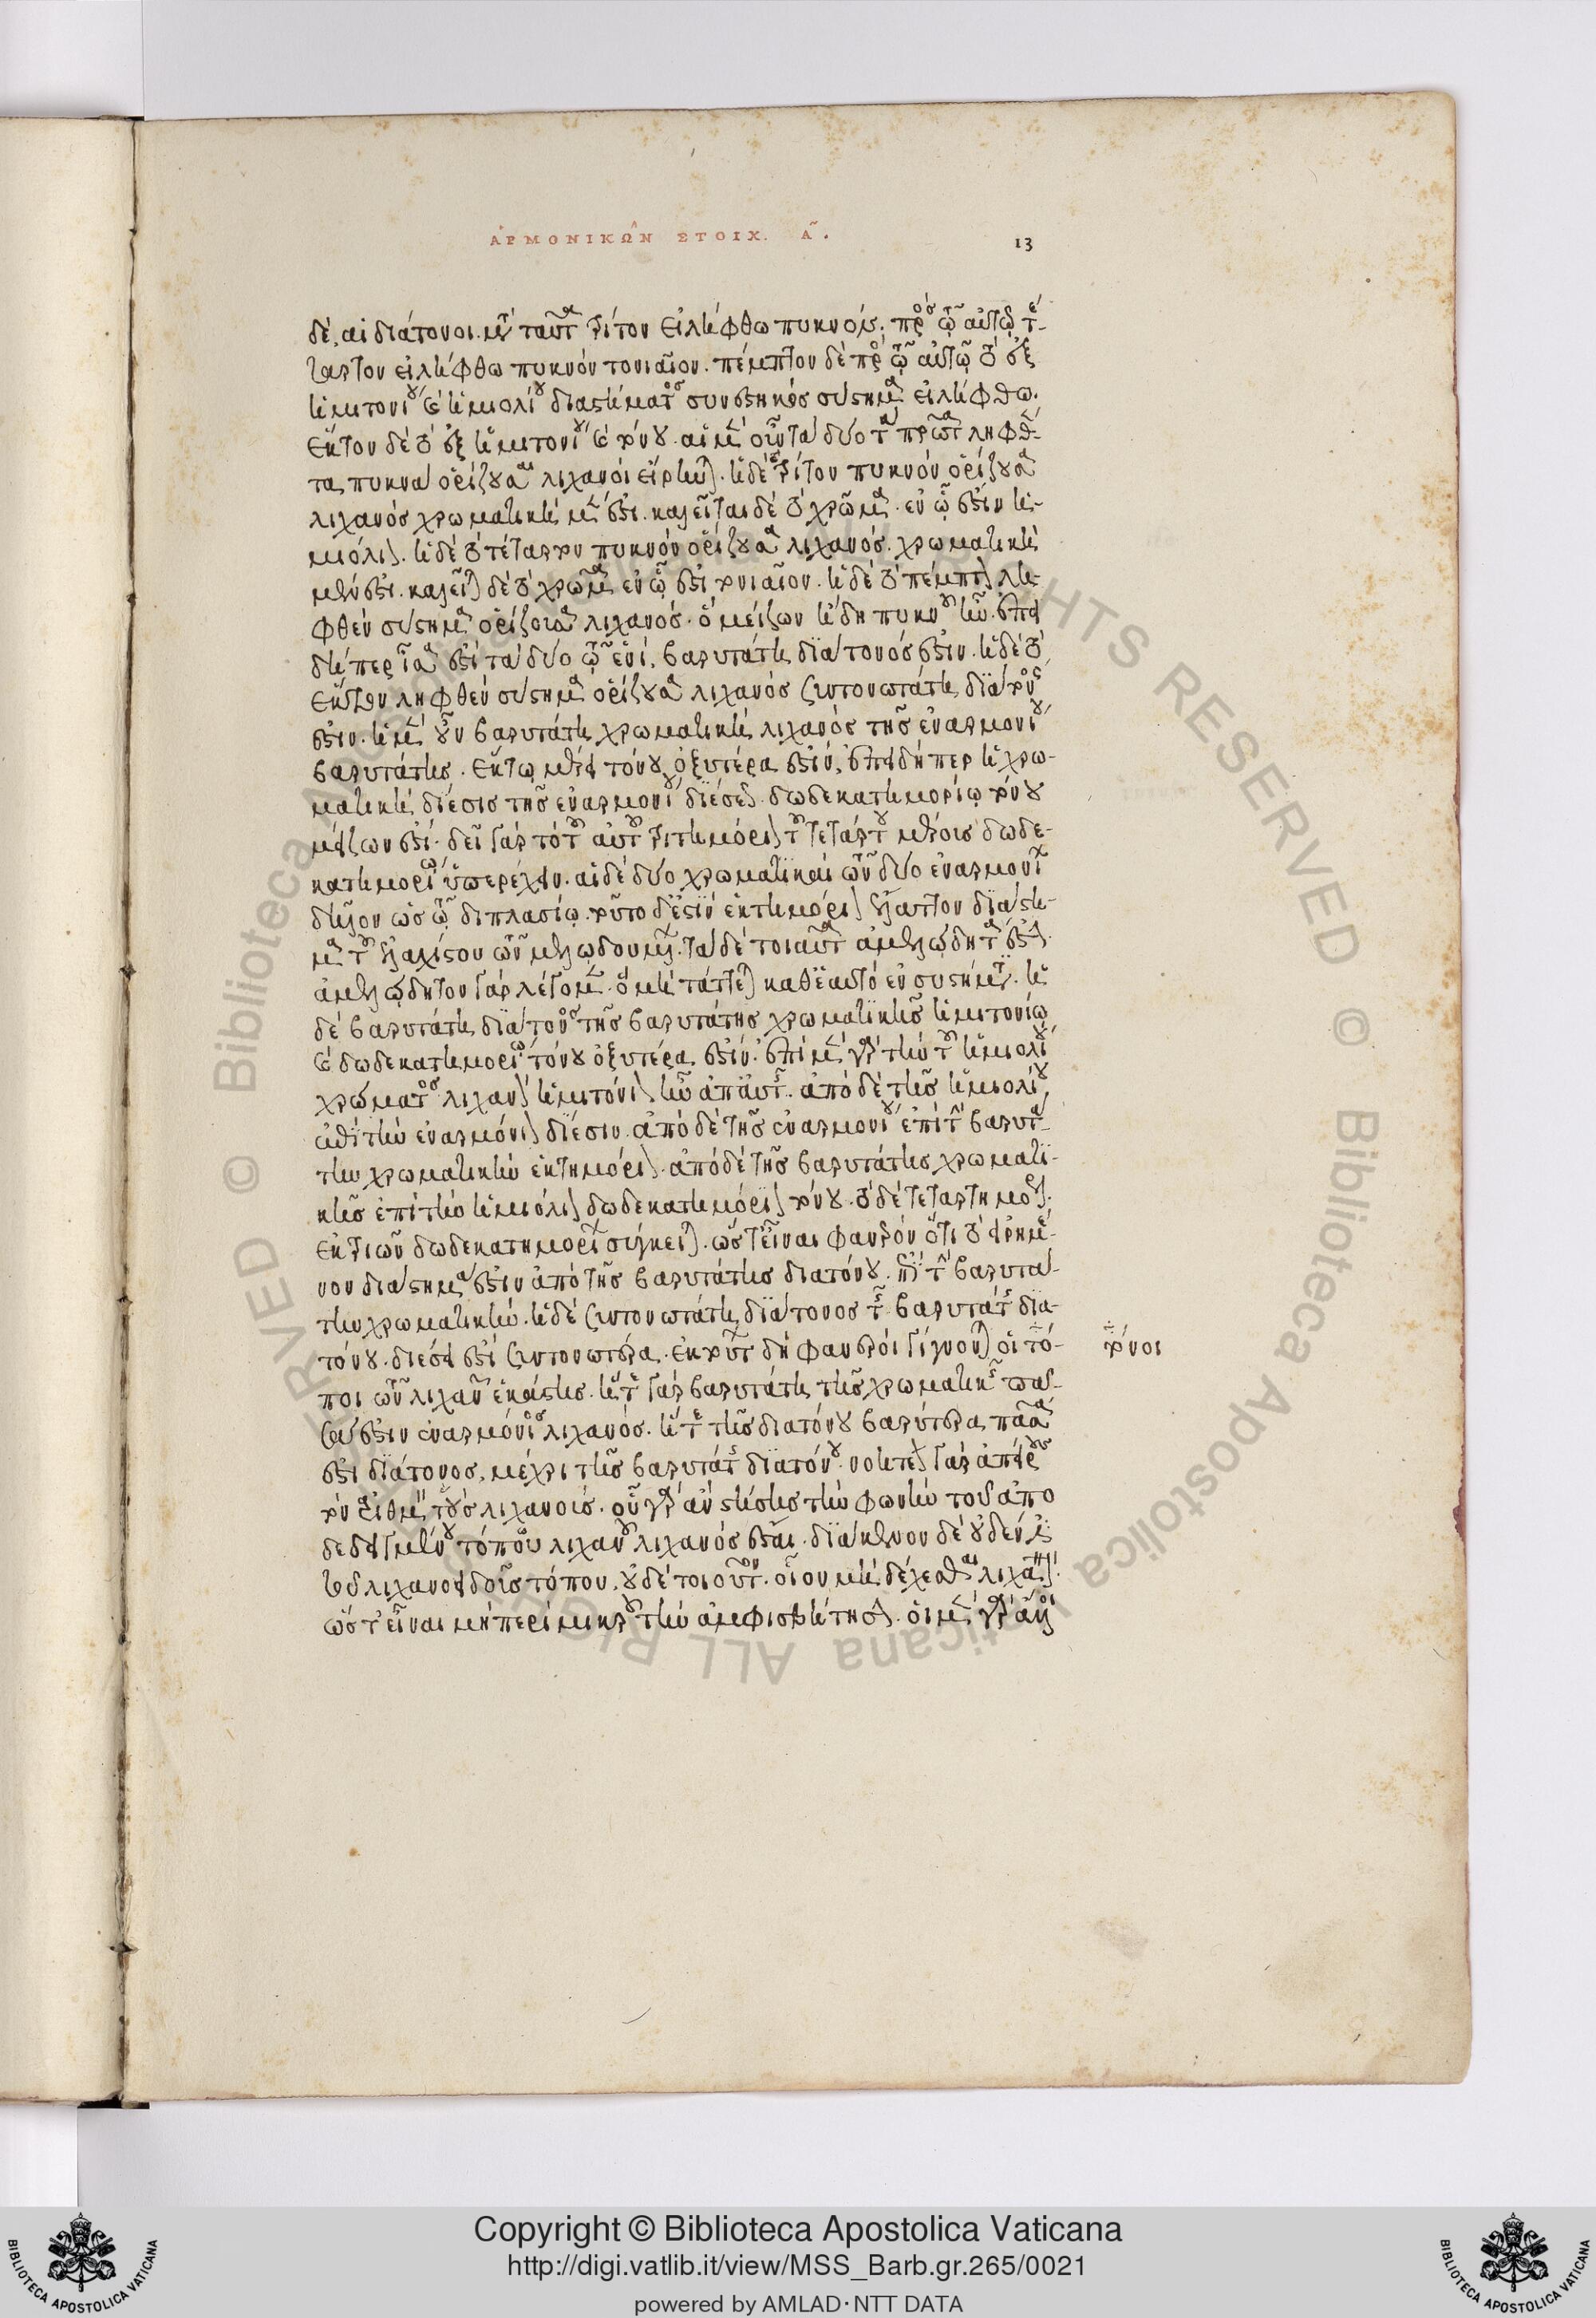 ἉΡΜΟΝΙΚῶΝ ΣΤΟΙΧ. Α῀.
13
δὲ, αἱ διάτονοι. μετὰ ταῦτα τρίτον εἰλήφθω πυκνόν· πρὸς τῷ αὐτῷ τέ-
ταρτον εἰλήφθω πυκνὸν τονιαῖον. πέμπτον δὲ πρὸς τῷ αὐτῷ τὸ ἐξ
ἡμιτονίου καὶ ἡμιολίου διαστήματος συνεστηκὸς σύστημα εἰλήφθω.
ἕκτον δὲ τὸ ἐξ ἡμιτονίου καὶ τόνου. αἱ μὲν οὖν τὰ δύο τὰ πρῶτα ληφθέν-
τα πυκνὰ ὁρίζουσαι λιχανοὶ εἴρηνται. ἡ δὲ τρίτον πυκνὸν ὁρίζουσα
λιχανὸς χρωματικὴ μέν ἐστι. καλεῖται δὲ τὸ χρῶμα ἐν ᾧ ἐστιν ἡ-
μιόλιον. ἡ δὲ τὸ τέταρτον πυκνὸν ὁρίζουσα λιχανὸς. χρωματικὴ
μέν ἐστι. καλεῖται δὲ τὸ χρῶμα ἐν ᾧ ἐστι τονιαῖον. ἡ δὲ τὸ πέμπτον λη-
φθὲν σύστημα ὁρίζουσα λιχανὸς. ὁ μεῖζον ἤδη πυκνοῦ ἦν. ἐπει
δήπερ ἴσα ἐστὶ τὰ δύο τῷ ἑνὶ. βαρυτάτη διάτονός ἐστιν. ἡ δὲ τὸ
ἕκτον ληφθὲν σύστημα ὁρίζουσα λιχανὸς συντονωτάτη διάτονός
ἐστιν. ἡ μὲν οὖν βαρυτάτη χρωματικὴ λιχανὸς τῆς ἐναρμονίου
βαρυτάτης. ἕκτῳ μέρει τόνου ὀξυτέρα ἐστίν. ἐπειδήπερ ἡ χρω-
ματικὴ δίεσις τῆς ἐναρμονίου διέσεως. δωδεκατημορίῳ τόνου
μείζων ἐστί. δεῖ γὰρ τὸ τοῦ αὐτοῦ τριτημόριον τοῦ τετάρτου μέρους δωδε-
κατημορίῳ ὑπερέχειν. αἱ δὲ δύο χρωματικαὶ τῶν δύο ἐναρμονίων
δῆλον ὡς τῷ διπλασίῳ. τοῦτο δέ ἐστιν ἑκτημόριον ἔλαττον διάστη-
μα τοῦ ἐλαχίστου τῶν μελῳδουμένων. τὰ δὲ τοιαῦτα ἀμελῴδητά ἐστιν.
ἀμελῴδητον γὰρ λέγομεν. ὃ μὴ τάττεται καθ᾽ ἑαυτὸ ἐν συστήματι. ἡ
δὲ βαρυτάτη διάτονος τῆς βαρυτάτης χρωματικῆς ἡμιτονίῳ
καὶ δωδεκατημορίῳ τόνου ὀξυτέρα ἐστίν. ἐπὶ μὲν γὰρ τὴν τοῦ ἡμιολίου
χρώματος λιχανὸν ἡμιτόνιον ἦν ἀπ᾽ αὐτῆς. ἀπὸ δὲ τῆς ἡμιολίου
ἐπὶ τὴν ἐναρμόνιον δίεσιν. ἀπὸ δὲ τῆς ἐναρμονίου ἐπὶ τὴν βαρυτά-
την χρωματικὴν ἑκτημόριον. ἀπὸ δὲ τῆς βαρυτάτης χρωματι-
κῆς ἐπὶ τὴν ἡμιόλιον δωδεκατημόριον τόνου. τὸ δὲ τεταρτημόριον
ἐκ τριῶν δωδεκατημορίων σύγκειται. ὥστ᾽ εἶναι φανερὸν ὅτι τὸ εἰρημέ-
νον διάστημά ἐστιν ἀπὸ τῆς βαρυτάτης διατόνου. ἐπὶ τὴν βαρυτά-
την χρωματικήν. ἡ δὲ συντονωτάτη διάτονος τῆς βαρυτάτης δια-
τόνου. διέσει ἐστὶ συντονωτέρα. ἐκ τούτων δὴ φανεροὶ γίγνονται οἱ τό-
ποι τῶν λιχανῶν ἑκάστης. ἥ τε γὰρ βαρυτάτη τῆς χρωματικῆς πᾶ-
σά ἐστιν ἐναρμόνιος λιχανὸς. ἥ τε τῆς διατόνου βαρυτέρα πᾶσα
ἐστι διάτονος, μέχρι τῆς βαρυτάτης διατόνου. νοητέον γὰρ ἀπείρους
τὸν ἀριθμὸν τοὺς λιχανούς. οὗ γὰρ ἂν στήσῃς τὴν φωνὴν τοῦ ἀπο
δεδειγμένου τόπου λιχανοῦ λιχανὸς ἔσται. διάκενον δὲ οὐδέν ἐστι
τοῦ λιχανοειδοῦς τόπου. οὐδὲ τοιοῦτον. οἷον μὴ δέχεσθαι λιχανόν.
ὥστ᾽ εἶναι μὴ περὶ μικροῦ τὴν ἀμφισβήτησιν. οἱ μὲν γὰρ ἄλλοι
τόνοι
Copyright © Biblioteca Apostolica Vaticana
http://digi.vatlib.it/view/MSS_Barb.gr.265/0021
powered by AMLAD·NTT DATA
BIBLIOTECA APOSTOLICA VATICANA
BIBLIOTECA APOSTOLICA VATICANA
© Biblioteca Apostolica Vaticana ALL RIGHTS RESERVED
© Biblioteca Apostolica Vaticana ALL RIGHTS RESERVED